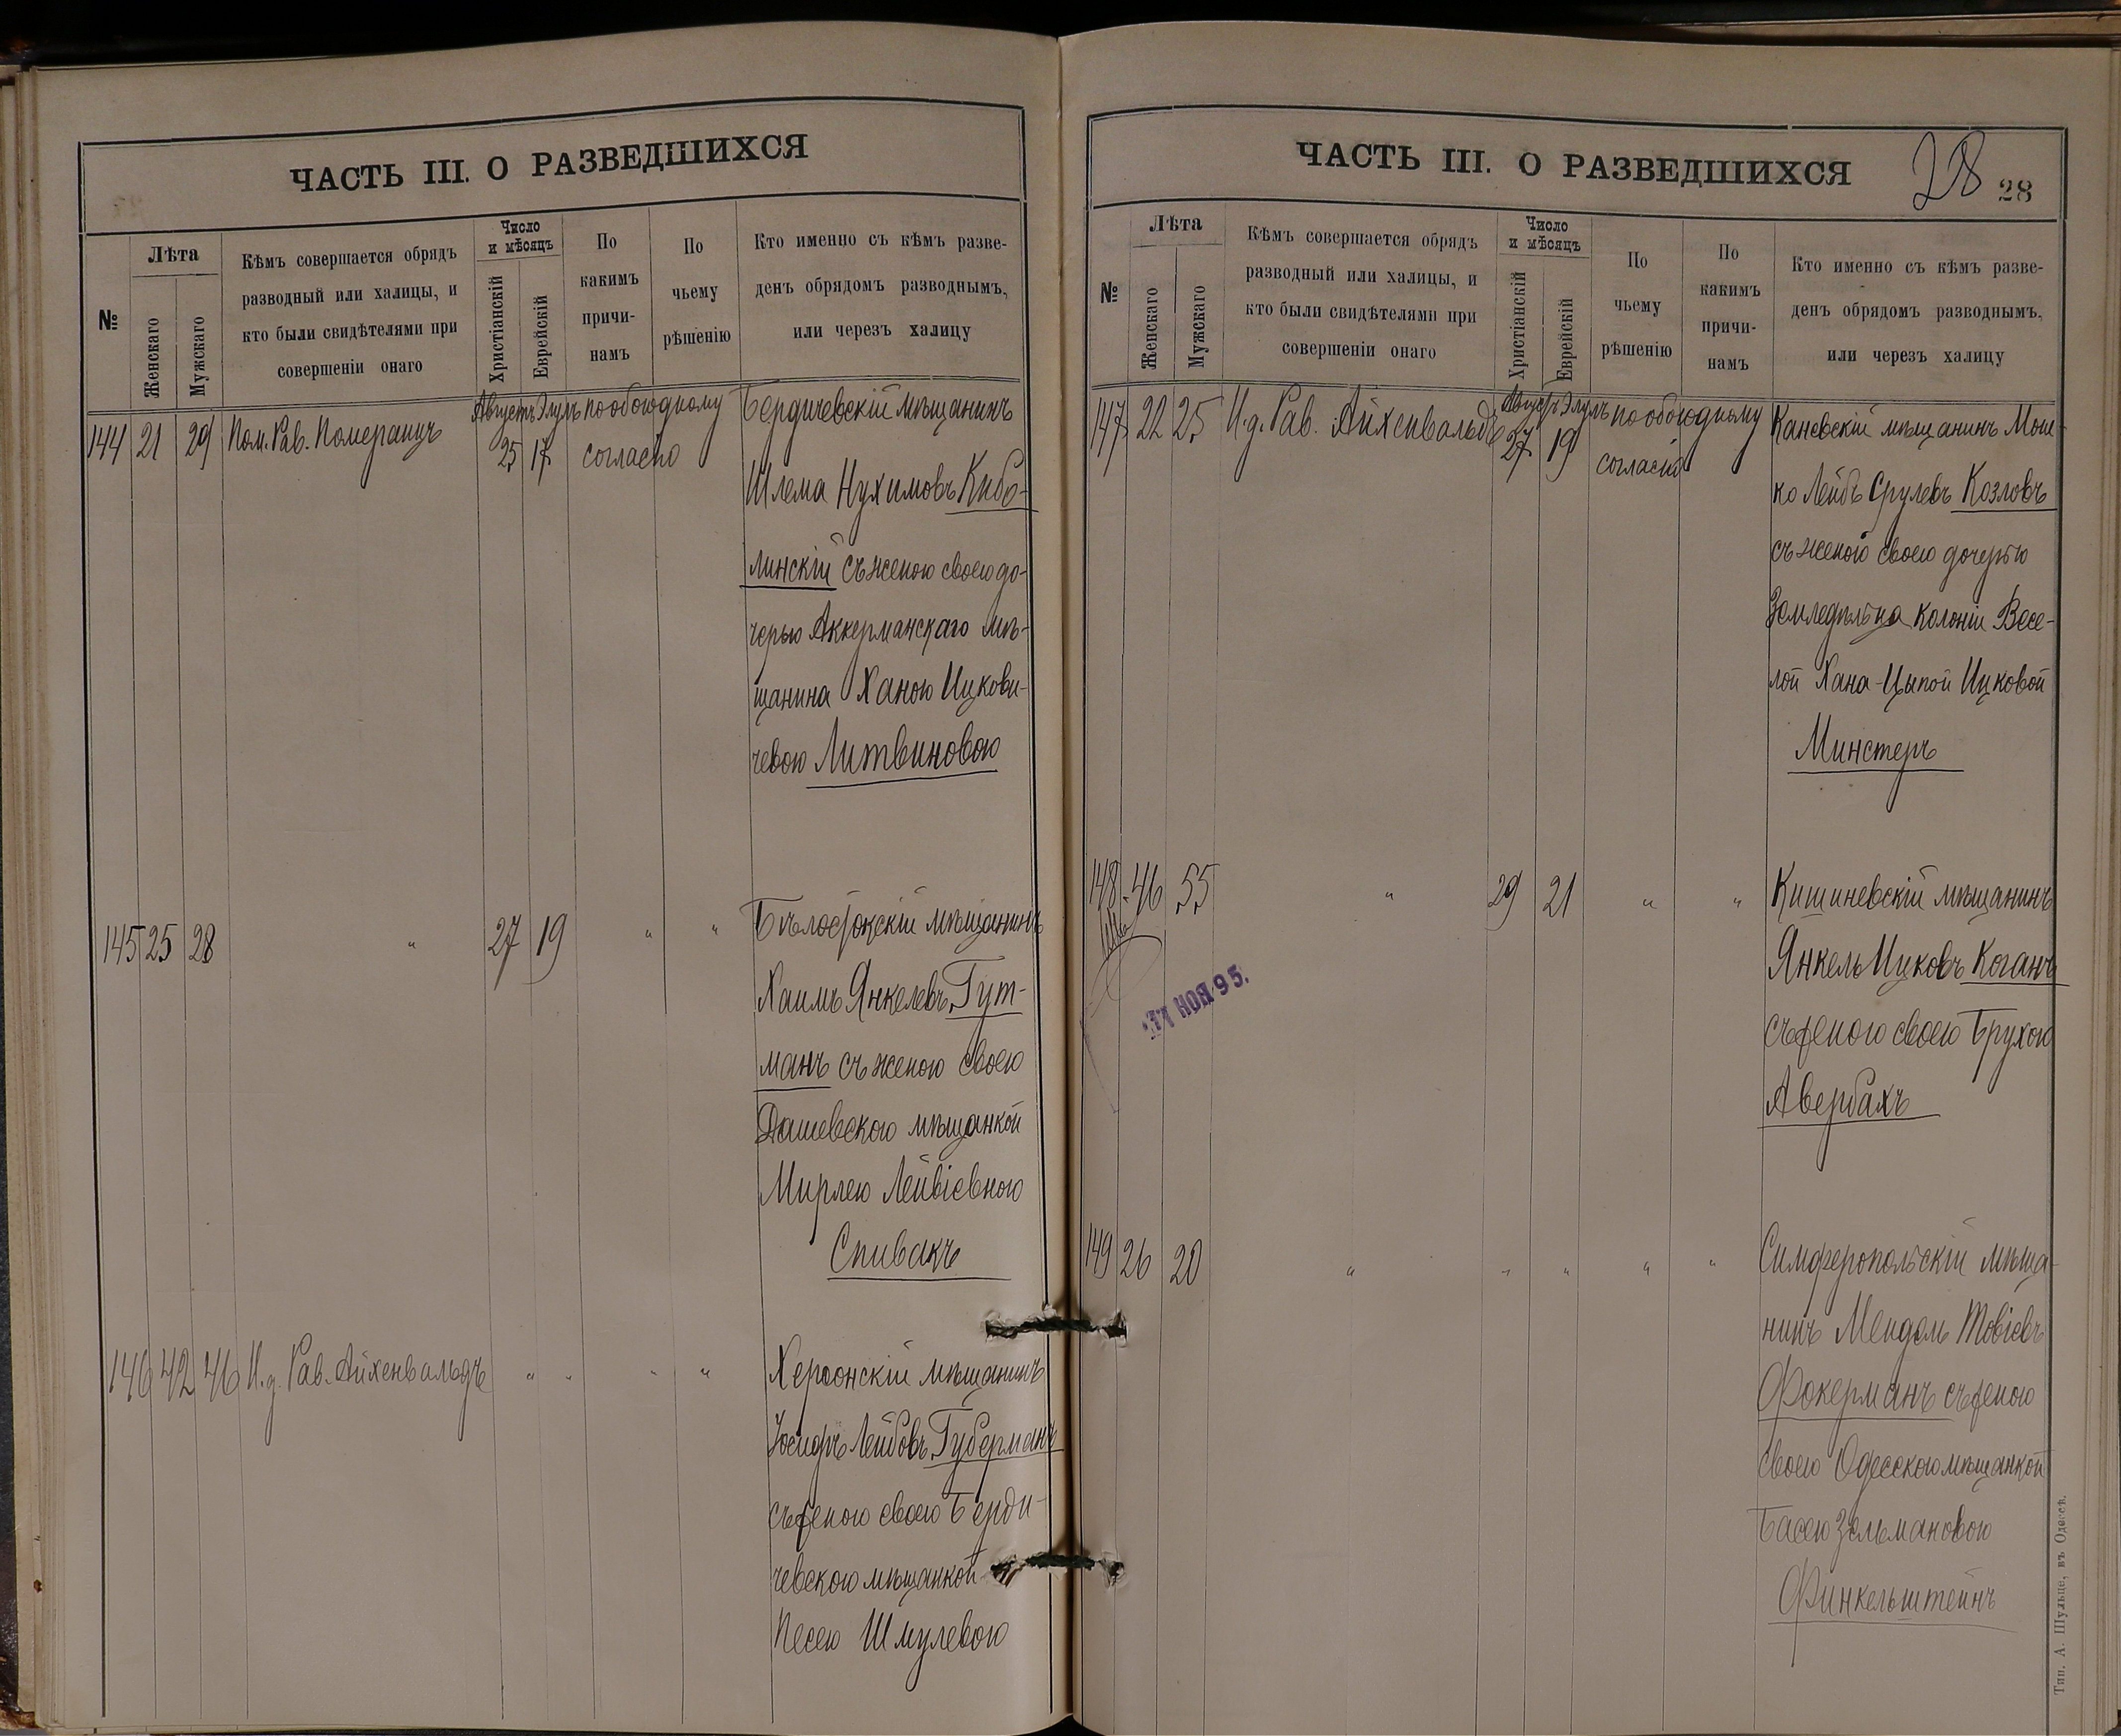 ЧАСТЬ III. О РАЗВЕДШИХСЯ
№
Лѣта
Женскаго
Мужскаго
Кѣмъ совершается обрядъ
разводный или халицы, и
кто были свидѣтелями при
совершеніи онаго
Число
и мѣсяцъ
Христіанскій
Еврейскій
По
какимъ
причи-
намъ
По
чьему
рѣшенію
Кто именно съ кѣмъ разве-
денъ обрядомъ разводнымъ,
или черезъ халицу
144 21 29 Пом. Рав. Померанцъ
Августъ Элулъ
25 17
по обоюдному
согласію
Бердичевскій мѣщанинъ
Шлема Нухимовъ Кибо-
линскій съ женою своею до-
черью Аккерманскаго мѣ-
щанина Ханою Ицкови-
чевою Литвиновою
145 25 28 " 27 19 " "
Бѣлостокскій мѣщанинъ
Хаимъ Янкелевъ Гут-
манъ съ женою своею
Дашевскою мѣщанкой
Мирлею Лейвіевною
Спивакъ
146 42 46 И. д. Рав. Айхенвальдъ " " " "
Херсонскій мѣщанинъ
Іосифъ Лейбовъ Губерманъ
съ женою своею Берди-
чевскою мѣщанкой
Песею Шмулевою
ЧАСТЬ III. О РАЗВЕДШИХСЯ
28
28
№
Лѣта
Женскаго
Мужскаго
Кѣмъ совершается обрядъ
разводный или халицы, и
кто были свидѣтелями при
совершеніи онаго
Число
и мѣсяцъ
Христіанскій
Еврейскій
По
чьему
рѣшенію
По
какимъ
причи-
намъ
Кто именно съ кѣмъ разве-
денъ обрядомъ разводнымъ,
или черезъ халицу
147 22 25 И. д. Рав. Айхенвальдъ
Августъ Элулъ
27 19
по обоюдному
согласію
Каневскій мѣщанинъ Мош-
ко Лейбъ Срулевъ Козловъ
съ женой своею дочерью
Земледѣльца колоніи Весе-
лой Хана-Цыпой Ицковой
Минстеръ
148 46 55 " 29 21 " "
Кишиневскій мѣщанинъ
Янкель Ицковъ Коганъ
съ женою своею Брухою
Авербахъ
НОЯ 95.
149 26 20 " " " " "
Симферопольскій мѣща-
нинъ Мендель Товіевъ
Фокерманъ съ женою
своею Одесскою мѣщанкой
Басею Зельмановою
Финкельштейнъ
Тип. А. Шульце, въ Одессѣ.